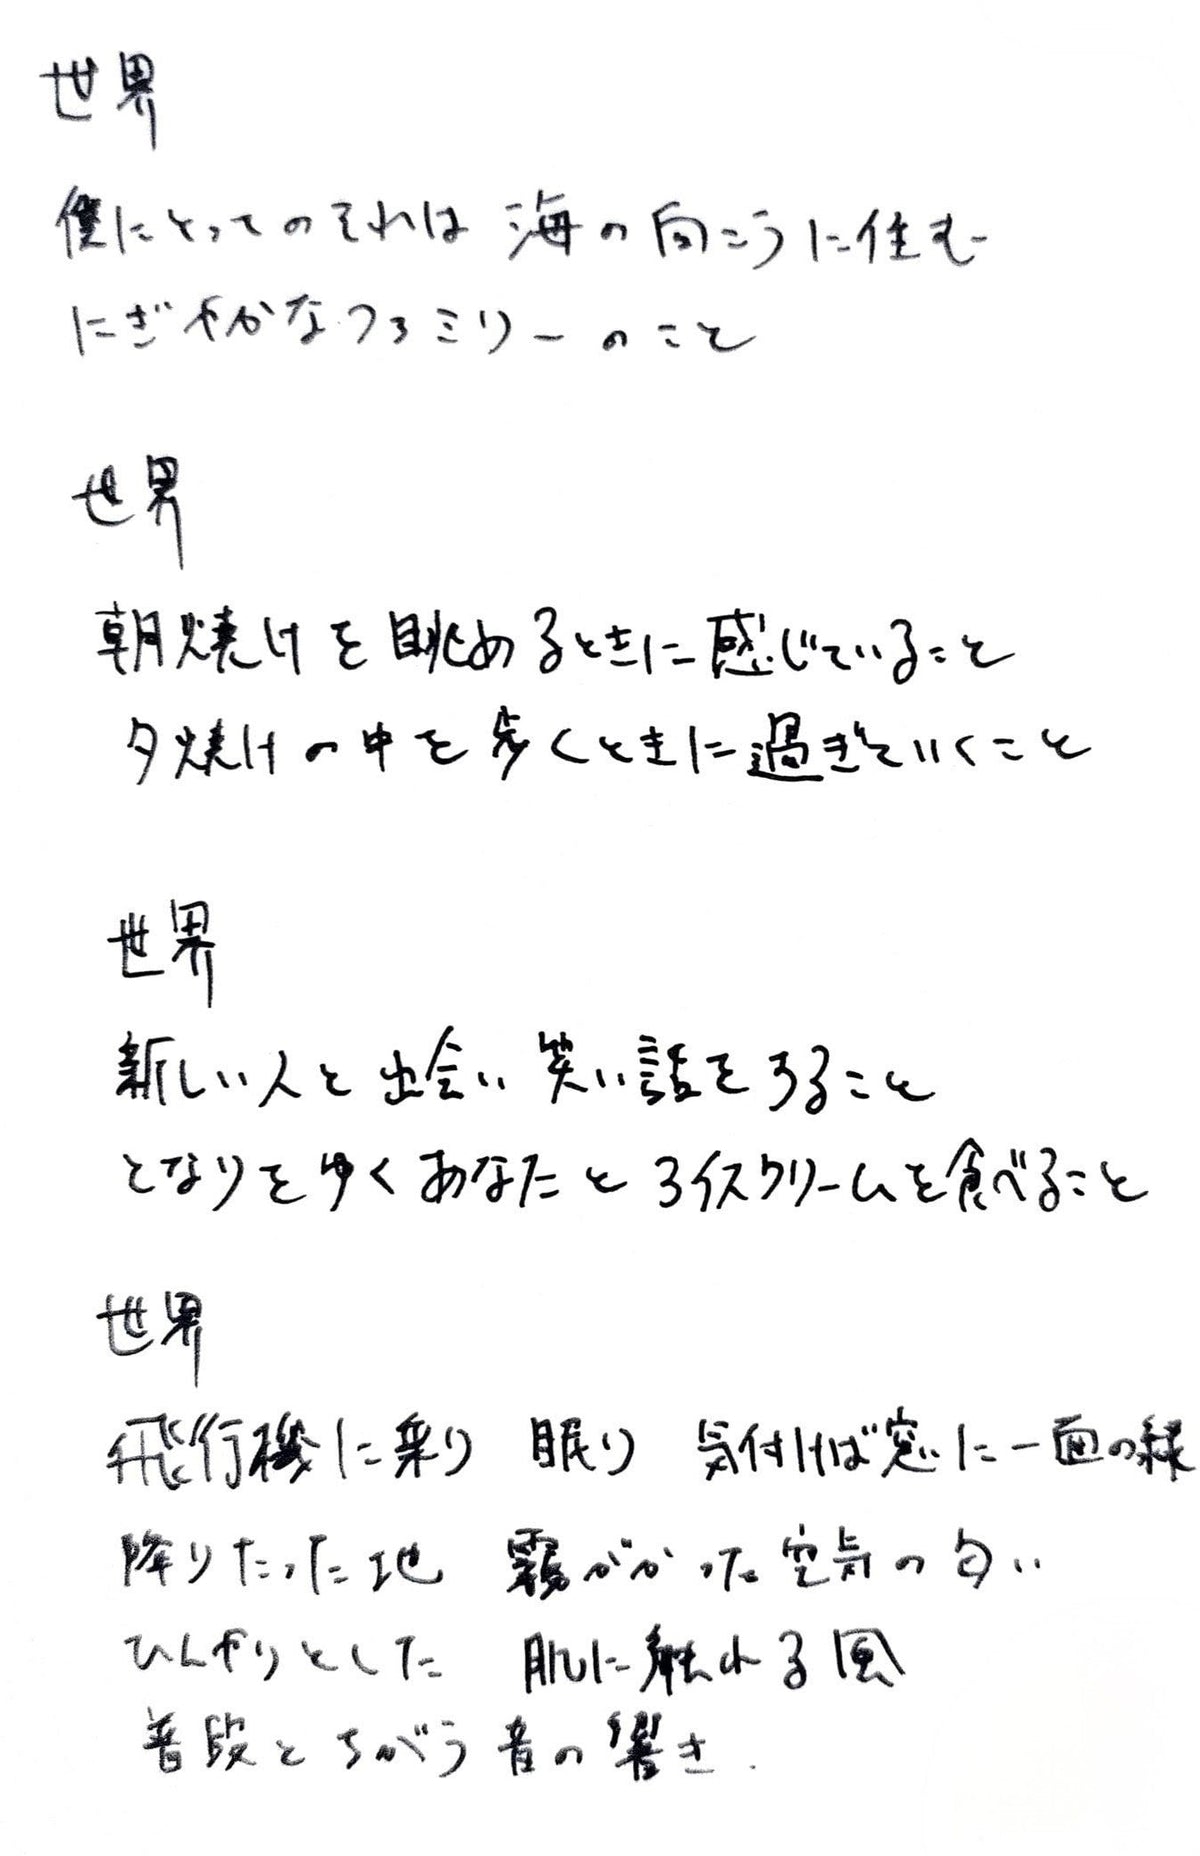 世界
僕にとってのそれは 海の向こうに住む
にぎやかなファミリーのこと
世界
朝焼けを眺めるときに感じていること
夕焼けの中を歩くときに過ぎていくこと
世界
新しい人と出会い 笑い話をすること
となりをゆくあなたとアイスクリームを食べること
世界
飛行機に乗り 眠り 気付けば窓に一面の緑
降りたった地 霧がかった空気の匂い
ひんやりとした 肌に触れる風
普段とちがう音の響き.